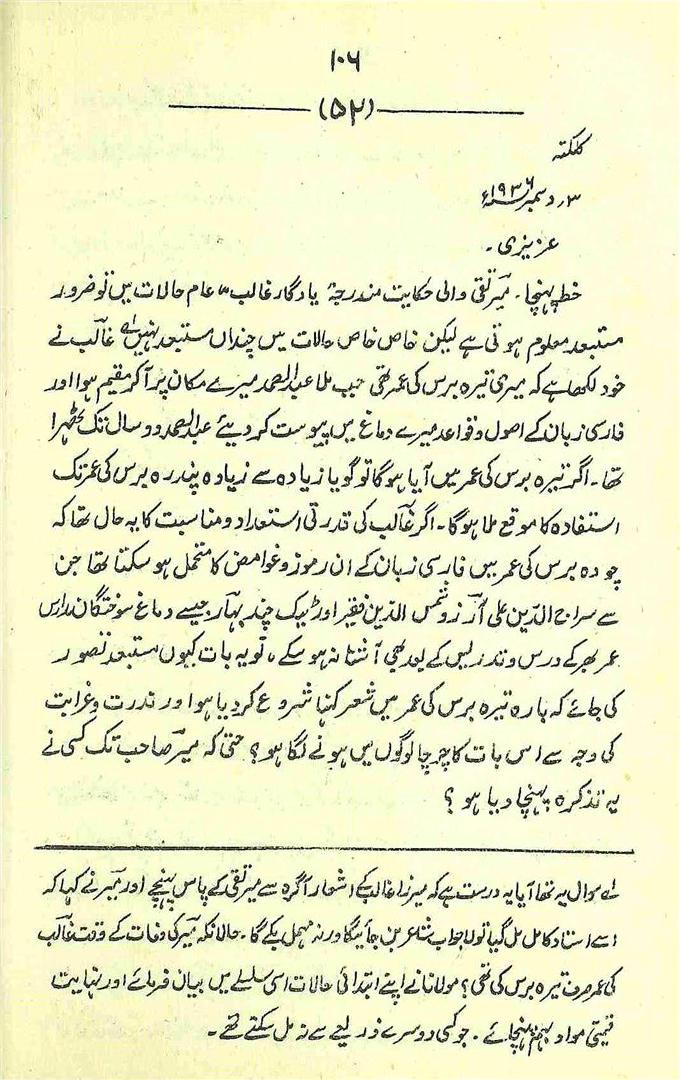 ۱۰۶
(۵۲)
کلکتہ
۳؍ دسمبر ۱۹۳۶ء
عزیزی۔
خط پہنچا۔ میر تقی والی حکایت مندرجۂ یادگار غالب عام حالات میں تو ضرور
مستبعد معلوم ہوتی ہے لیکن خاص خاص حالات میں چنداں مستبعد نہیں لے غالب نے
خود لکھا ہے کہ میری تیرہ برس کی عمر تھی جب ملا عبدالصمد میرے مکان پر آکر مقیم ہوا اور
فارسی زبان کے اصول و قواعد میرے دماغ میں پیوست کر دیئے عبدالصمد دو سال تک ٹھہرا
تھا۔ اگر تیرہ برس کی عمر میں آیا ہوگا تو گویا زیادہ سے زیادہ پندرہ برس کی عمر تک
استفادہ کا موقع ملا ہوگا۔ اگر غالب کی قدرتی استعداد و مناسبت کا یہ حال تھا کہ
چودہ برس کی عمر میں فارسی زبان کے ان رموز و غوامض کا متحمل ہو سکتا تھا جن
سے سراج الدین علی آرزو شمس الدین فقیر اور ٹیک چند بہار جیسے دماغ سوختگان مدارس
عمر بھر کے درس و تدریس کے بعد بھی آشنا نہ ہو سکے، تو یہ بات کیوں مستبعد تصور
کی جائے کہ بارہ تیرہ برس کی عمر میں شعر کہنا شروع کر دیا ہو اور ندرت و غرابت
کی وجہ سے اس بات کا چرچا لوگوں میں ہونے لگا ہو؟ حتیٰ کہ میر صاحب تک کسی نے
یہ تذکرہ پہنچا دیا ہو؟
لے سوال یہ تھا آیا یہ درست ہے کہ میرزا غالب کے اشعار آگرہ سے میر تقی کے پاس پہنچے اور میر نے کہا کہ
اسے استاد کامل مل گیا تو لاجواب شاعر بن جائیگا ورنہ مہمل بکے گا۔ حالانکہ میر کی وفات کے وقت غالب
کی عمر صرف تیرہ برس کی تھی؟ مولانا نے اپنے ابتدائی حالات اسی سلسلے میں بیان فرمائے اور نہایت
قیمتی مواد بہم پہنچائے۔ جو کسی دوسرے ذریعے سے نہ مل سکتے تھے۔